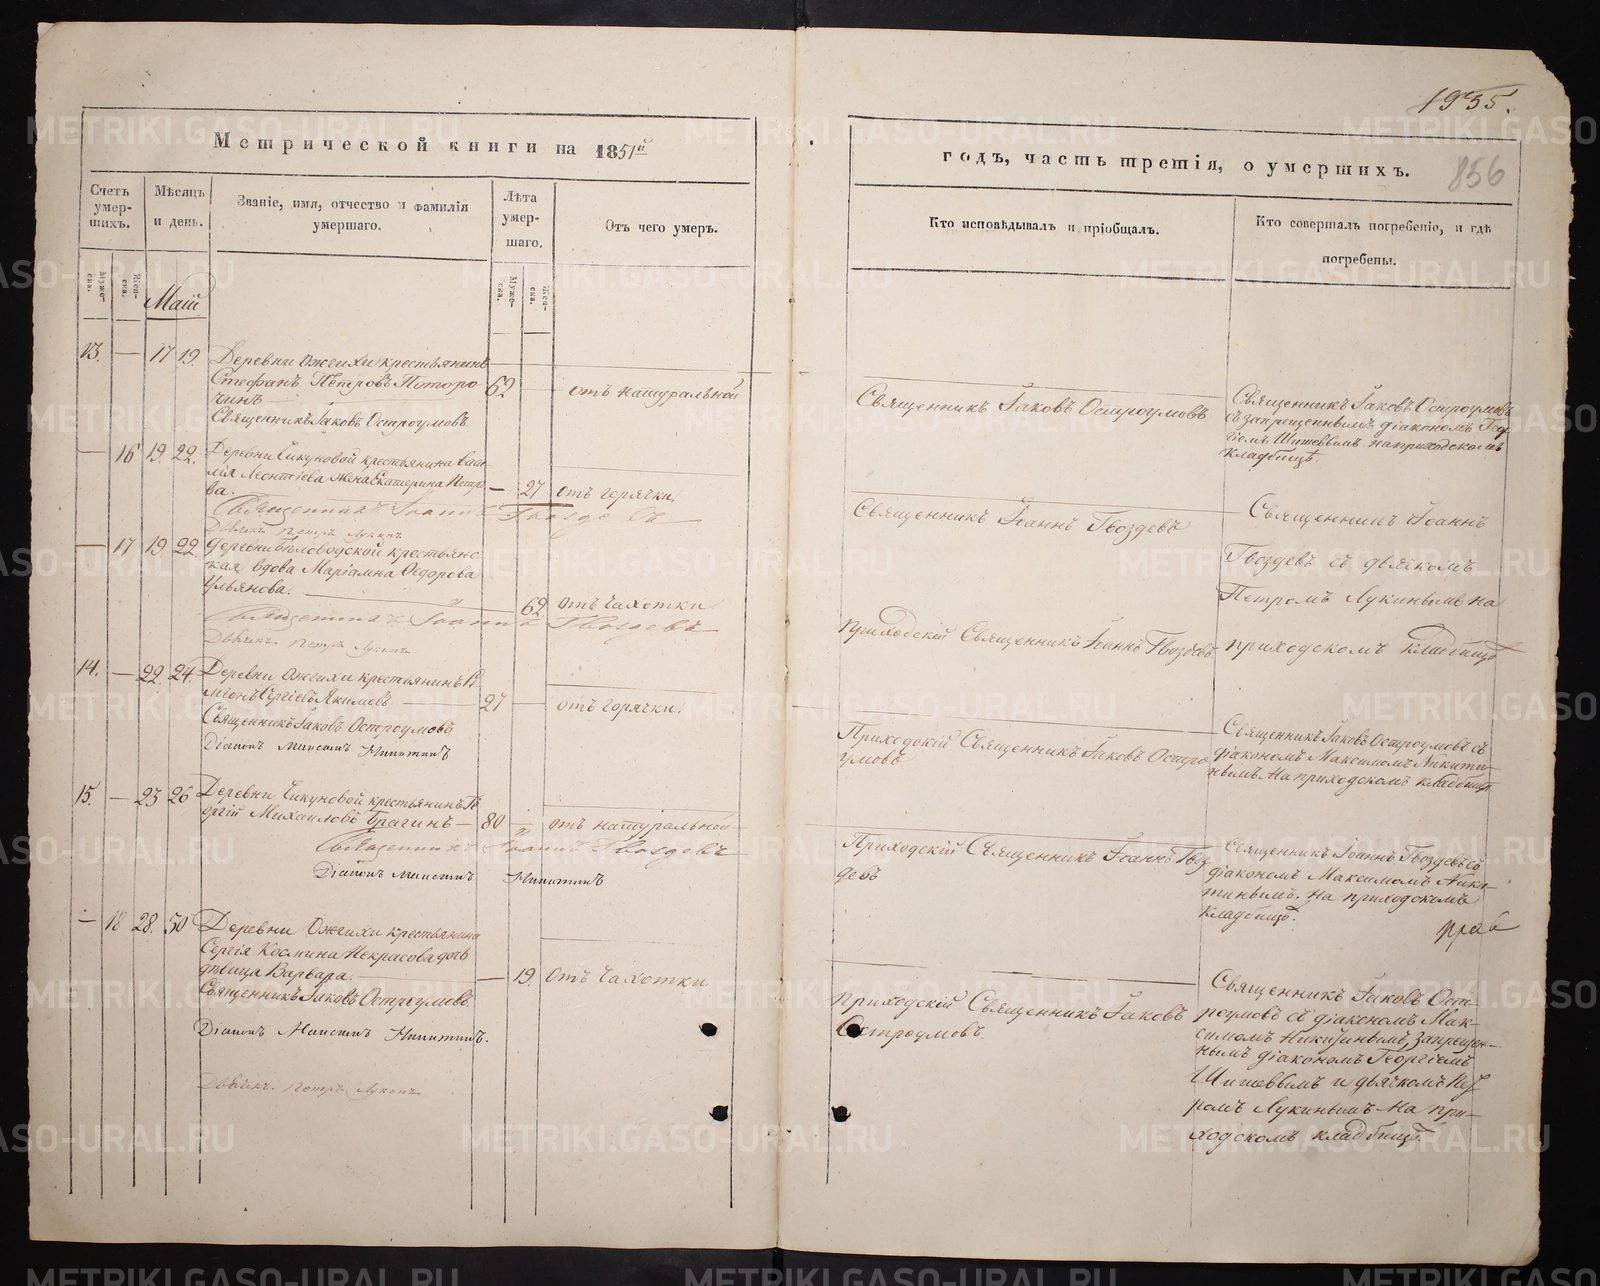 1935.
856
Метрической книги на 1851й
годъ, часть третія, о умершихъ.
Счетъ умер-шихъ.
Мѣсяцъ и день.
Званіе, имя, отчество и фамилія умершаго.
Лѣта умер-шаго.
Отъ чего умеръ.
Кто исповѣдывалъ и пріобщалъ.
Кто совершалъ погребеніе, и гдѣ погребены.
Муже-ска.
Жен-ска.
Муже-ска.
Жен-ска.
Маій
13. — 17 19.
Деревни Ожгихи крестьянинъ
Стефанъ Петровъ Поторо
чинъ —
62
отъ натуральной
Священникъ Іаковъ Остроумовъ
Священникъ Іаковъ Остроумовъ.
Священникъ Іаковъ Остроумовъ
съ запрещеннымъ діакономъ Геор
гіемъ Шишевымъ на приходскомъ
кладбищѣ.
— 16 19. 22.
Деревни Чикуновой крестьянина Васи
лія Леонтіева жена Екатерина Петро
ва.
— 27
отъ горячки.
Священникъ Іоаннъ Гвоздевъ
Дьячекъ Петръ Лукинъ
Священникъ Іоаннъ Гвоздевъ
Священникъ Іоаннъ
Гвоздевъ съ дьячкомъ
Петромъ Лукинымъ на
приходскомъ кладбищѣ
— 17 19 22
Деревни Бѣловодской крестьянс
кая вдова Маріамна Ѳедорова
Ульянова.
62
отъ чахотки
Священникъ Іоаннъ Гвоздевъ
Дьячекъ Петръ Лукинъ
Приходскій Священникъ Іоаннъ Гвоздевъ
14. — 22. 24.
Деревни Ожгихи крестьянинъ Си
міонъ Сергіевъ Якимовъ
27 —
отъ горячки.
Священникъ Іаковъ Остроумовъ
Діаконъ Максимъ Никитинъ
Приходскій Священникъ Іаковъ Остро
умовъ
Священникъ Іаковъ Остроумовъ съ
діакономъ Максимомъ Никити-
нымъ. На приходскомъ кладбищѣ.
15. — 23 26
Деревни Чикуновой крестьянинъ Ге
оргій Михаиловъ Брагинъ —
80 —
отъ натуральной
Священникъ Іоаннъ Гвоздевъ
Діаконъ Максимъ Никитинъ
Приходскій Священникъ Іоаннъ Гвоз
девъ
Священникъ Іоаннъ Гвоздевъ съ
діакономъ Максимомъ Ники-
тинымъ. На приходскомъ
кладбищѣ.
— 18 28. 30
Деревни Ожгихи крестьянина
Сергія Космина Некрасова дочь
дѣвица Варвара.
— 19.
отъ чахотки
Священникъ Іаковъ Остроумовъ
Діаконъ Максимъ Никитинъ.
Дьячекъ Петръ Лукинъ
Приходскій Священникъ Іаковъ
Остроумовъ.
Священникъ Іаковъ Ост-
роумовъ съ діакономъ Мак-
симомъ Никитинымъ, Запрещен-
нымъ діакономъ Георгіемъ
Шишевымъ и дьячкомъ Пет
ромъ Лукинымъ на при-
ходскомъ кладбищѣ.
METRIKI.GASO-URAL.RU